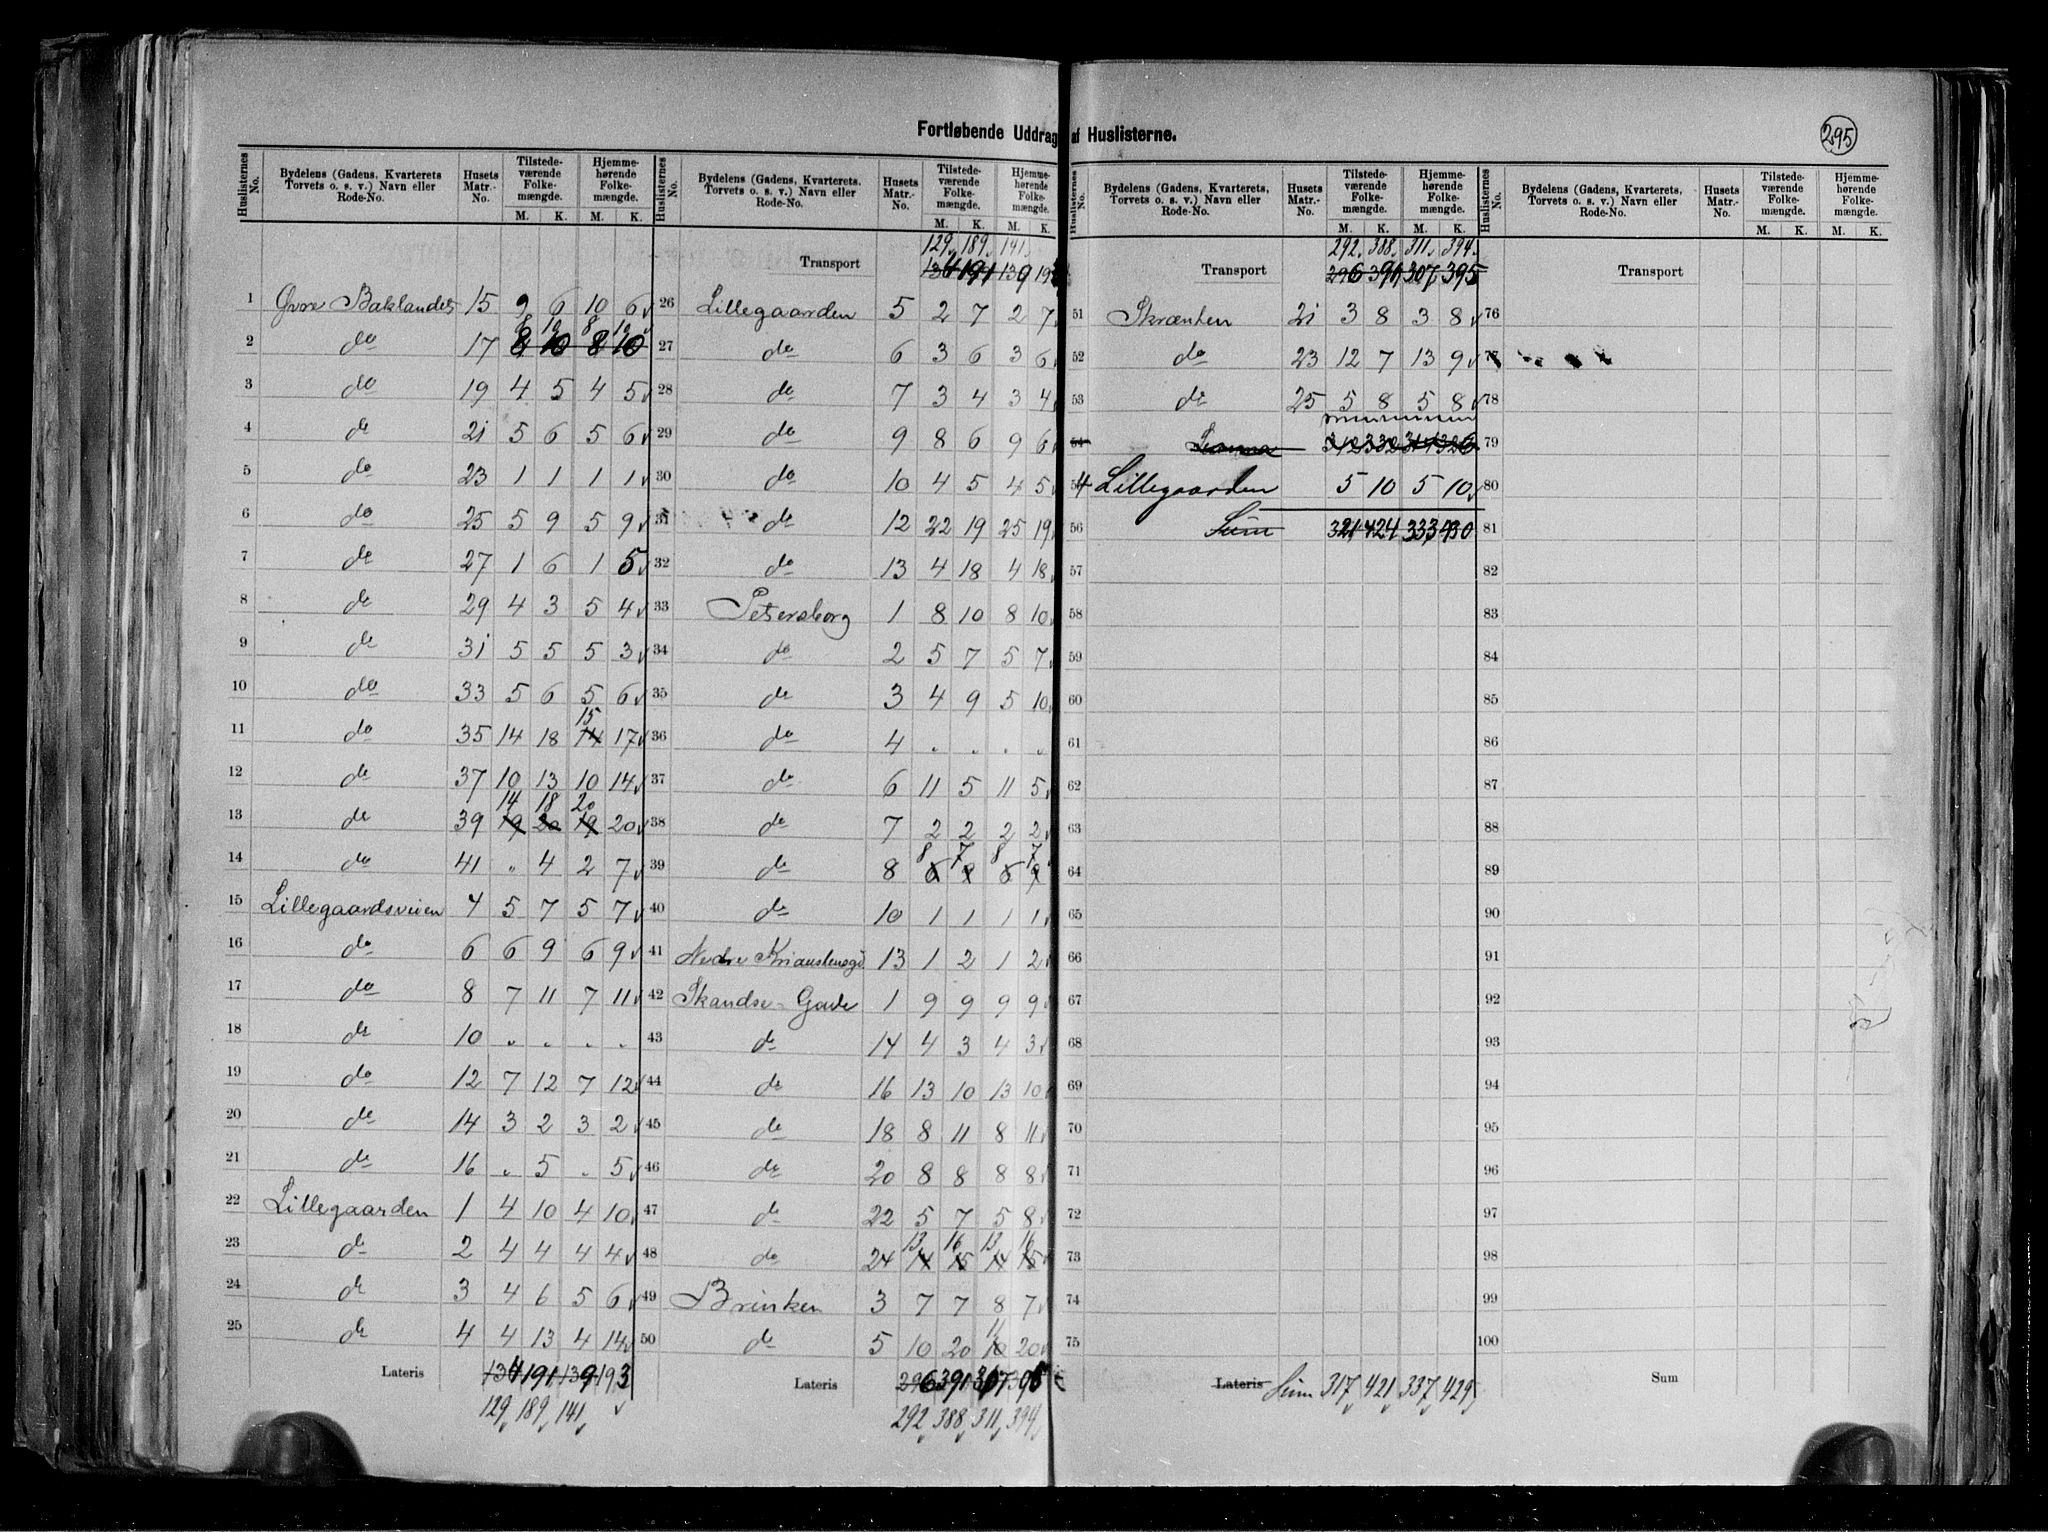 Fortløbende Uddrag af Huslisterne.
295
Huslisternes No. Bydelens (Gadens, Kvarterets, Torvets o. s. v.) Navn eller Rode-No. Husets Matr.-No. Tilstedeværende Folkemængde. M. K. Hjemmehørende Folkemængde. M. K.
1 Øvre Baklandet 15 9 6 10 6
2 do 17 8 10 8 10
3 do 19 4 5 4 5
4 do 21 5 6 5 6
5 do 23 1 1 1 1
6 do 25 5 9 5 9
7 do 27 1 6 1 5
8 do 29 4 3 5 4
9 do 31 5 5 5 3
10 do 33 5 6 5 6
11 do 35 14 18 15 14 17
12 do 37 10 13 10 14
14 18 20
13 do 39 19 20 19 20
14 do 41 " 4 2 7
15 Lillegaardsveien 4 5 7 5 7
16 do 6 6 9 6 9
17 do 8 7 11 7 11
18 do 10 " " " "
19 do 12 7 12 7 12
20 do 14 3 2 3 2
21 do 16 " 5 " 5
22 Lillegaarden 1 4 10 4 10
23 do 2 4 4 4 4
24 do 3 4 6 5 6
25 do 4 4 13 4 14
Lateris 134 191 139 193
129 189 141
Huslisternes No. Bydelens (Gadens, Kvarterets, Torvets o. s. v.) Navn eller Rode-No. Husets Matr.-No. Tilstedeværende Folkemængde. M. K. Hjemmehørende Folkemængde. M. K.
129 189 141
Transport 134 191 139 193
26 Lillegaarden 5 2 7 2 7
27 do 6 3 6 3 6
28 do 7 3 4 3 4
29 do 9 8 6 9 6
30 do 10 4 5 4 5
31 do 12 22 19 25 19
32 do 13 4 18 4 18
33 Petersborg 1 8 10 8 10
34 do 2 5 7 5 7
35 do 3 4 9 5 10
36 do 4 " " " "
37 do 6 11 5 11 5
38 do 7 2 2 2 2
8 7 8 7
39 do 8
40 do 10 1 1 1 1
41 Nedre 13 1 2 1 2
42 Skandse-Gade 1 9 9 9 9
43 do 14 4 3 4 3
44 do 16 13 10 13 10
45 do 18 8 11 8 11
46 do 20 8 8 8 8
47 do 22 5 7 5 8
13 16 13 16
48 do 24 14 15 14 15
49 Brinken 3 7 7 8 7
50 do 5 10 20 11 10 20
Lateris 296 391 307 395
292 388 311 394
Huslisternes No. Bydelens (Gadens, Kvarterets, Torvets o. s. v.) Navn eller Rode-No. Husets Matr.-No. Tilstedeværende Folkemængde. M. K. Hjemmehørende Folkemængde. M. K.
292 388 311 394
Transport 296 391 307 395
51 Skrænten 21 3 8 3 8
52 do 23 12 7 13 9
53 do 25 5 8 5 8
54
54 Lillegaarden 5 10 5 10
56 Sum 321 424 333 430
57
58
59
60
61
62
63
64
65
66
67
68
69
70
71
72
73
74
75
Lateris Sum 317 421 337 429
Huslisternes No. Bydelens (Gadens, Kvarterets, Torvets o. s. v.) Navn eller Rode-No. Husets Matr.-No. Tilstedeværende Folkemængde. M. K. Hjemmehørende Folkemængde. M. K.
Transport
76
77
78
79
80
81
82
83
84
85
86
87
88
89
90
91
92
93
94
95
96
97
98
99
100
Sum